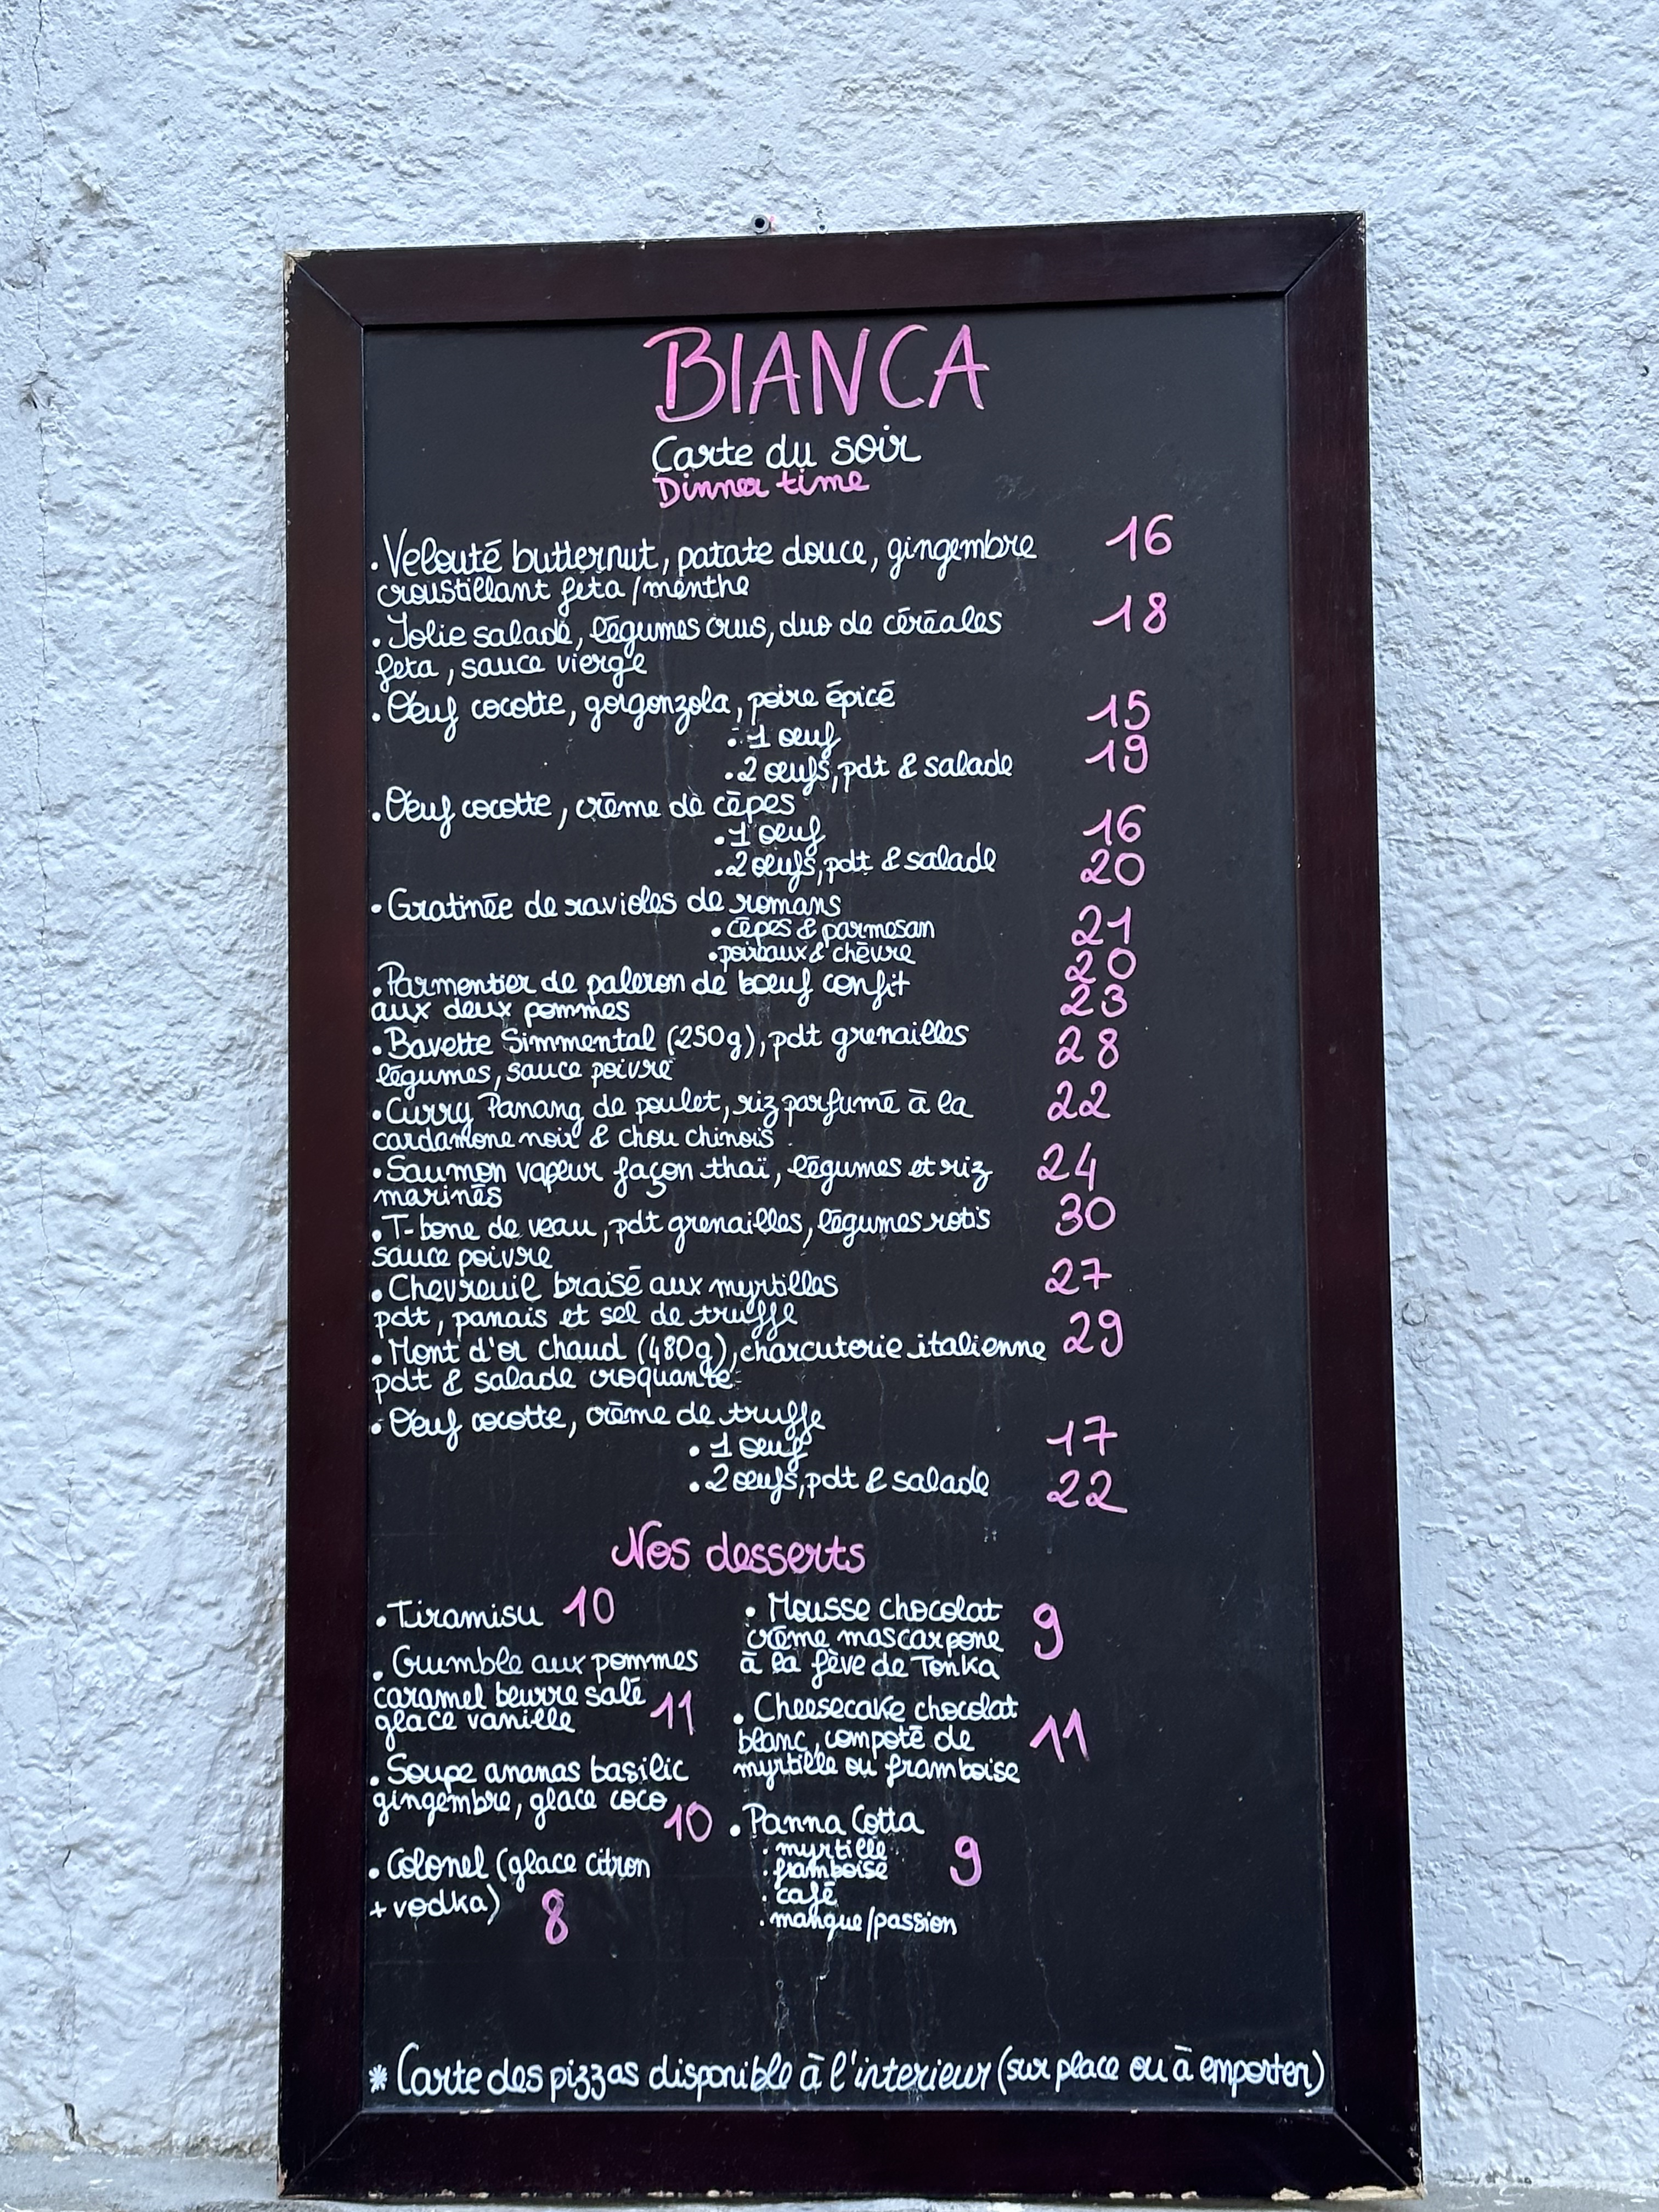 BIANCA
Carte du soir
Dinner time
. Velouté butternut, patate douce, gingembre 16
croustillant feta/menthe
. Jolie salade, légumes crus, duo de céréales 18
feta, sauce vierge
. Oeuf cocotte, gorgonzola, poire épicé
. 1 oeuf 15
. 2 oeufs, pdt & salade 19
. Oeuf cocotte, crème de cèpes
. 1 oeuf 16
. 2 oeufs, pdt & salade 20
. Gratinée de ravioles de romans
. cèpes & parmesan 21
. poireaux & chèvre 20
. Parmentier de paleron de boeuf confit 23
aux deux pommes
. Bavette Simmental (250g), pdt grenailles 28
légumes, sauce poivre
. Curry Panang de poulet, riz parfumé à la 22
cardamone noir & chou chinois
. Saumon vapeur façon thaï, légumes et riz 24
marinés
. T-bone de veau, pdt grenailles, légumes rotis 30
sauce poivre
. Chevreuil braisé aux myrtilles 27
pdt, panais et sel de truffe
. Mont d'or chaud (480g), charcuterie italienne 29
pdt & salade croquante
. Oeuf cocotte, crème de truffe
. 1 oeuf 17
. 2 oeufs, pdt & salade 22
Nos desserts
. Tiramisu 10
. Crumble aux pommes
caramel beurre salé
glace vanille 11
. Soupe ananas basilic
gingembre, glace coco 10
. Colonel (glace citron
+ vodka) 8
. Mousse chocolat
crème mascarpone 9
à la fève de Tonka
. Cheesecake chocolat
blanc, compoté de 11
myrtille ou framboise
. Panna Cotta
. myrtille 9
. framboise
. café
. mangue/passion
* Carte des pizzas disponible à l'interieur (sur place ou à emporter)